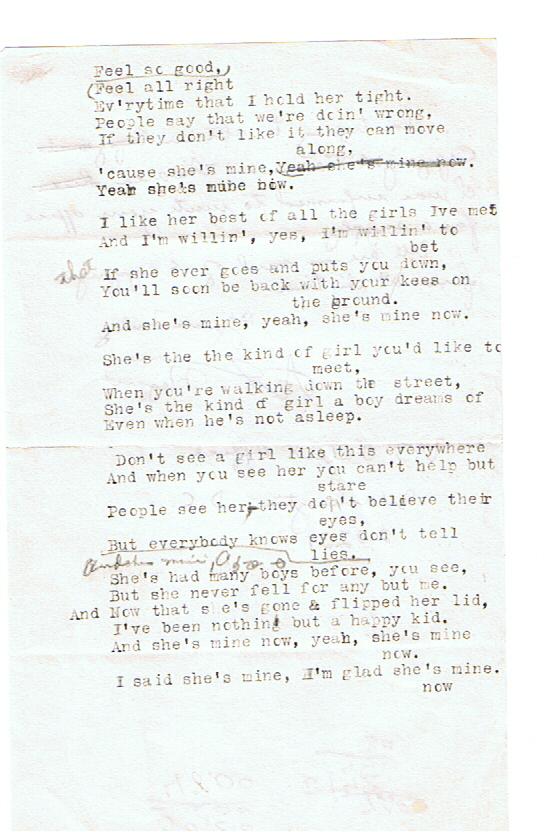 Feel so good,
(Feel all right
Ev'rytime that I hold her tight.
People say that we're doin' wrong,
If they don't like it they can move
along,
'cause she's mine, Yeah she's mine now.
Yeah she's mine now.
I like her best of all the girls Ive met
And I'm willin', yes, I'm willin' to
bet
that If she ever goes and puts you down,
You'll soon be back with your kees on
the ground.
And she's mine, yeah, she's mine now.
She's the the kind of girl you'd like to
meet,
When you're walking down the street,
She's the kind of girl a boy dreams of
Even when he's not asleep.
Don't see a girl like this everywhere
And when you see her you can't help but
stare
People see her, they do't beldeve their
eyes,
But everybody knows eyes don't tell
lies.
mine,
She's had many boys before, you see,
But she never fell for any but me.
And Now that she's gone & flipped her lid,
I've been nothing but a happy kid.
And she's mine now, yeah, she's mine
now.
I said she's mine, I'm glad she's mine.
now